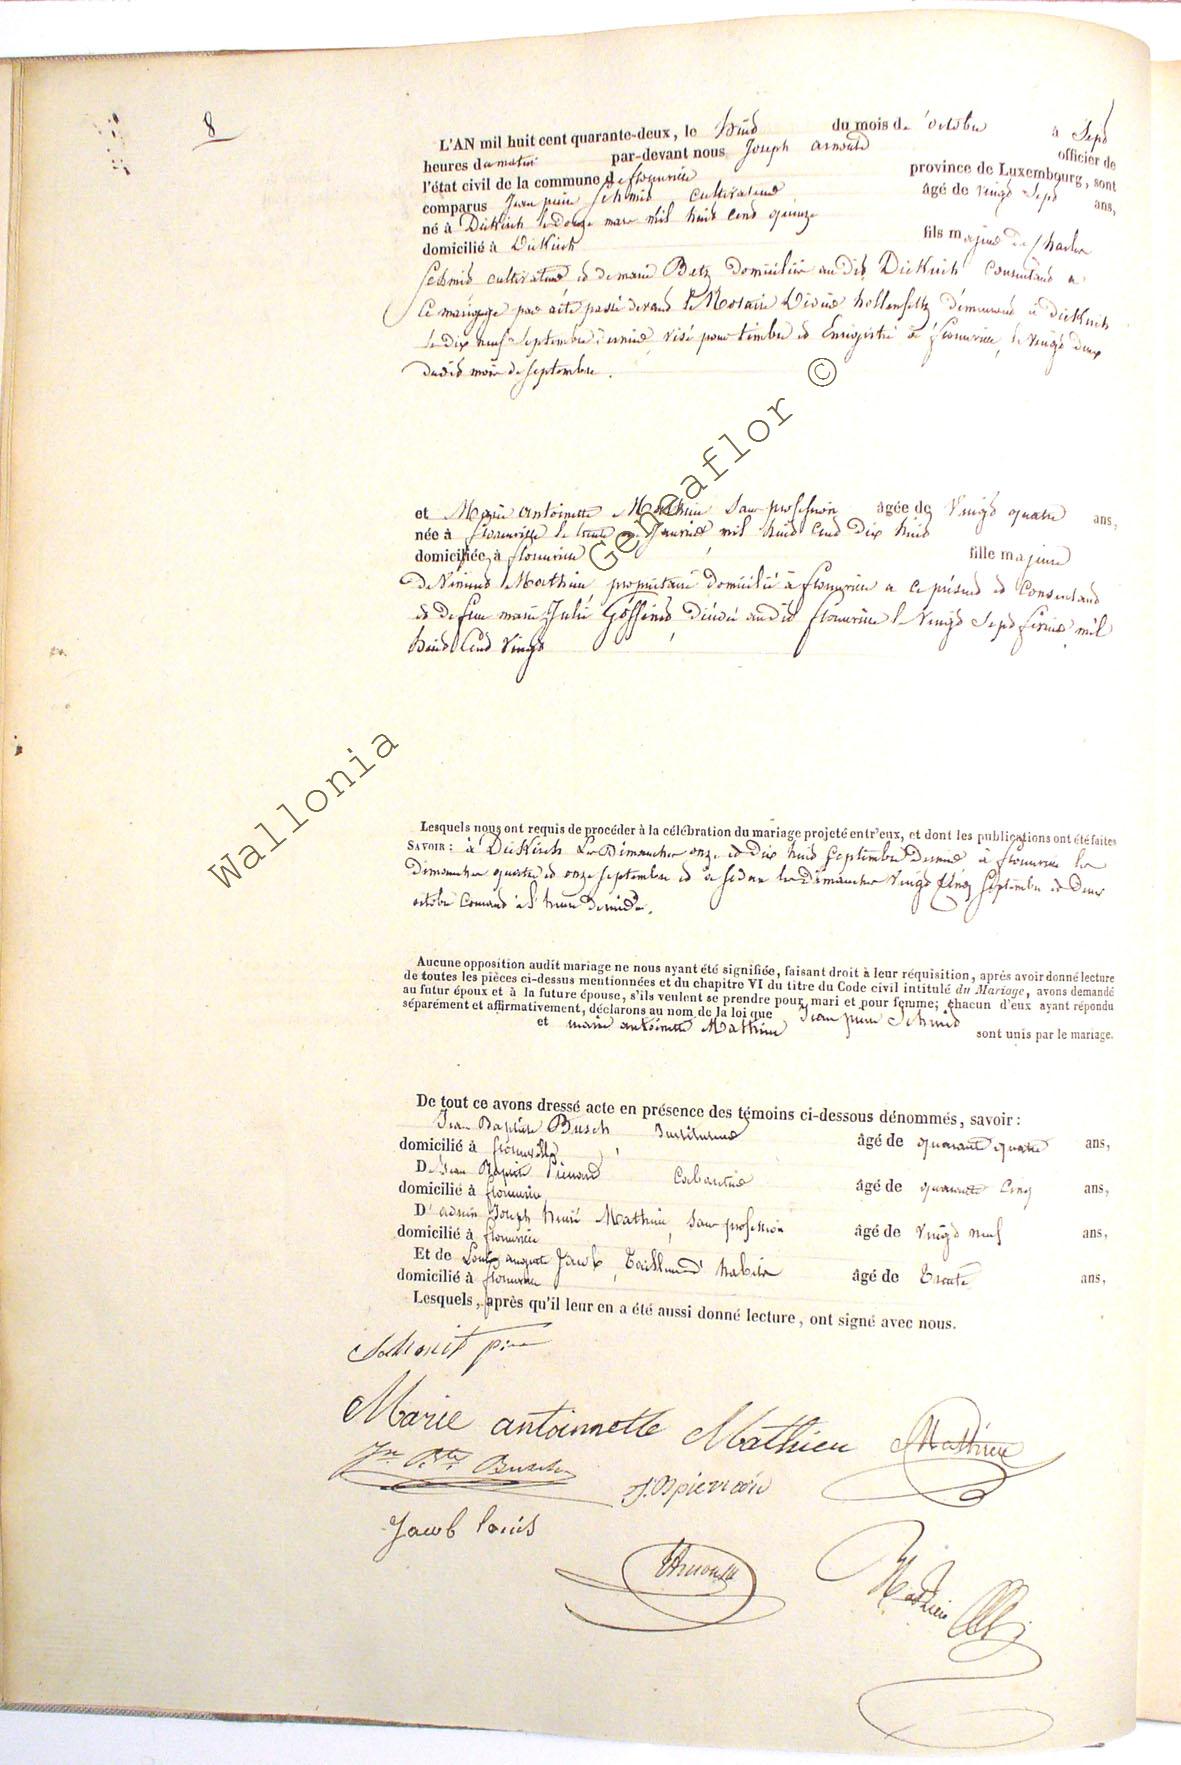 8
L'AN mil huit cent quarante-deux, le huit du mois de octobre à sept
heures du matin par-devant nous Joseph arnould officier de
l'état civil de la commune de florenville province de Luxembourg, sont
comparus Jean pierre Schmit cultivateur âgé de vingt sept ans,
né à Diekirch le Douze mars mil huit cent quinze
domicilié à Diekirch fils majeur de Charles
Schmit cultivateur et de marie Betz domiciliés audit Diekirch consentant a
ce mariage par acte passé devant le Notaire hollenfeltz demeurant à diekirch
le dix neuf septembre dernier, visé pour timbre et Enregistré à florenville, le vingt deux
dudit mois de septembre.
et Marie antoinette Mathieu sans profession âgée de vingt quatre ans,
née à florenville le trente Janvier mil huit cent dix huit
domiciliée à florenville fille majeure
De Mathieu propriétaire domicilié à florenville a ce présent et consentant
et de feue marie Julie Gossiaux décédée audit florenville le vingt sept février mil
huit cent vingt
Lesquels nous ont requis de procéder à la célébration du mariage projeté entr'eux, et dont les publications ont été faites
SAVOIR : à Diekirch les Dimanches onze et dix huit septembre dernier à florenville les
Dimanches quatre et onze septembre et à sedan les Dimanches vingt cinq septembre et deux
octobre courant à l'heure de midi.
Aucune opposition audit mariage ne nous ayant été signifiée, faisant droit à leur réquisition, après avoir donné lecture
de toutes les pièces ci-dessus mentionnées et du chapitre VI du titre du Code civil intitulé du Mariage, avons demandé
au futur époux et à la future épouse, s'ils veulent se prendre pour mari et pour femme; chacun d'eux ayant répondu
séparément et affirmativement, déclarons au nom de la loi que Jean pierre Schmit
et marie antoinette Mathieu sont unis par le mariage.
De tout ce avons dressé acte en présence des témoins ci-dessous dénommés, savoir :
Jean Baptiste Busch, âgé de quarante quatre ans,
domicilié à florenville
De Jean Baptiste Pierrard Cabaretier âgé de quarante cinq ans,
domicilié à florenville
D' Joseph henri Mathieu, sans profession âgé de vingt neuf ans,
domicilié à florenville
Et de Louis auguste Jacob, Tailleur d'habits âgé de Trente ans,
domicilié à florenville
Lesquels, après qu'il leur en a été aussi donné lecture, ont signé avec nous.
Schmit pierre
Marie antoinnette Mathieu Mathieu
Jn Bte Busch
Jacob louis
Arnould
Mathieu
Wallonia Geneaflor ©